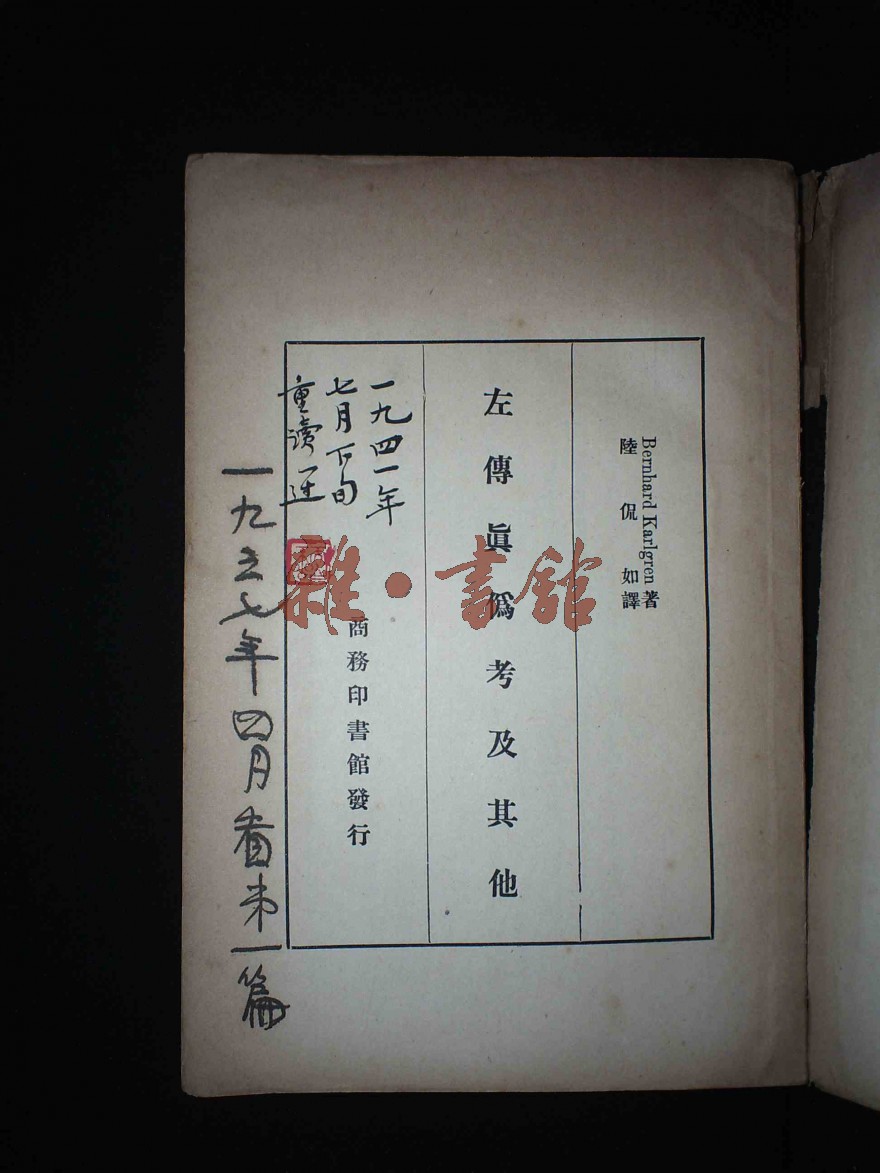 Bernhard Karlgren著
陸侃如譯
左傳眞僞考及其他
商務印書館發行
一九四一年
七月下旬
重讀一遍
一九五七年四月看第一篇
雜·書館